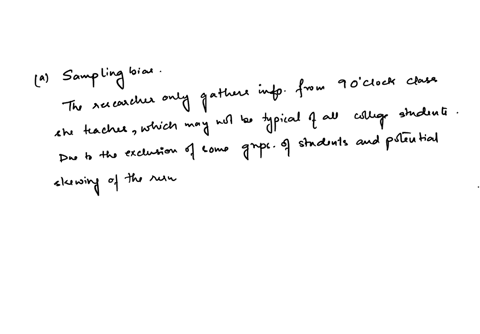 (a) Sampling bias.
The researcher only gathers info. from 9 O'clock class
she teaches, which may not be typical of all college students.
Due to the exclusion of some grps. of students and potential
skewing of the